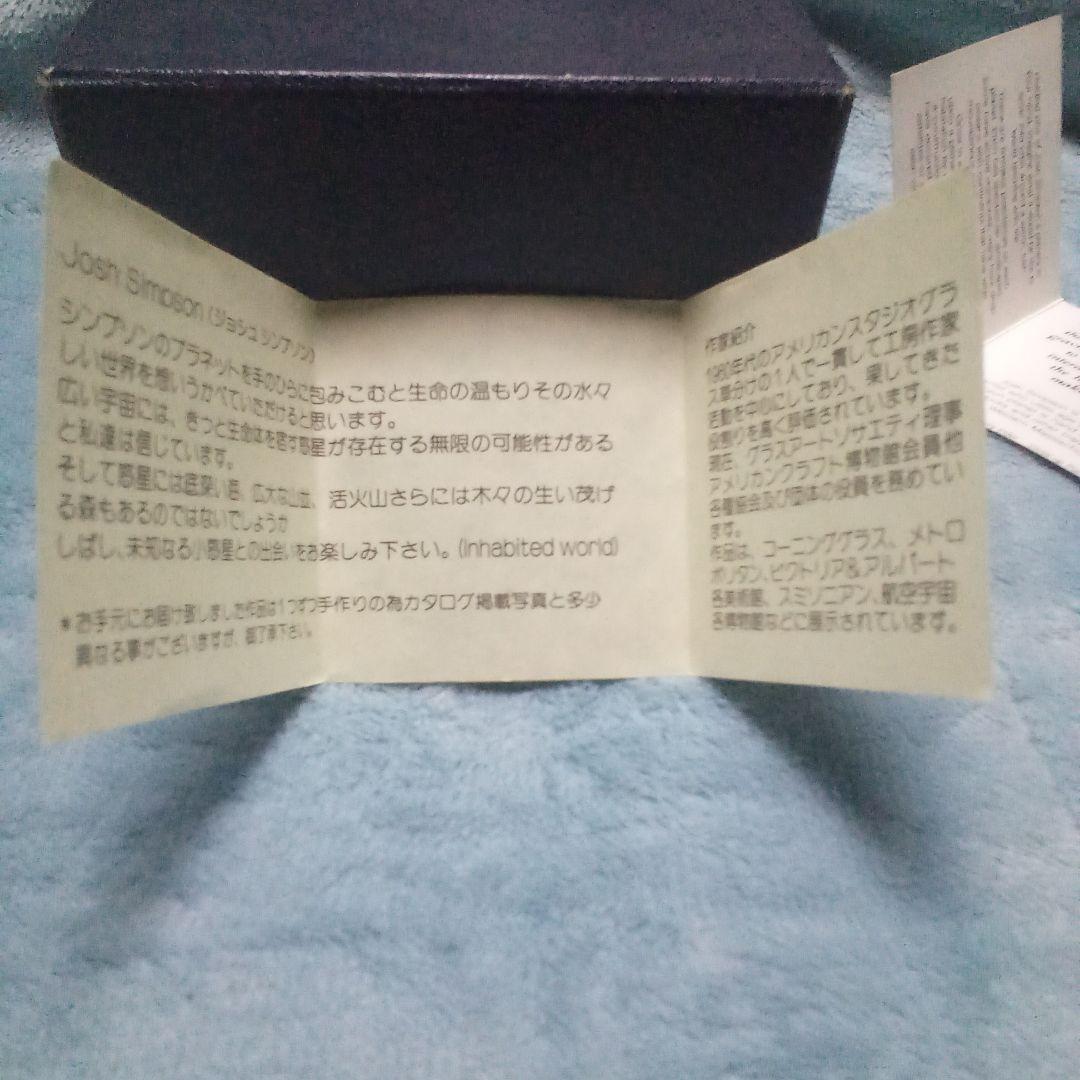 Josh Simpson (ジョシュ シンプソン)
シンプソンのプラネットを手のひらに包みこむと生命の温もりその水々
しい世界を想いうかべていただけると思います。
広い宇宙には、きっと生命体を宿す惑星が存在する無限の可能性がある
と私達は信じています。
そして惑星には底深い海、広大な山並、活火山さらには木々の生い茂げ
る森もあるのではないでしょうか
しばし、未知なる小惑星との出会いをお楽しみ下さい。(Inhabited world)
*お手元にお届け致しました作品は1つずつ手作りの為カタログ掲載写真と多少
異なる事がございますが、御了承下さい。
作家紹介
1960年代のアメリカンスタジオグラ
ス草分けの1人で一貫して工房作家
活動を中心にしており、果してきた
役割りを高く評価されています。
現在、グラスアートソサエティ理事
アメリカンクラフト博物館会員他
各種協会及び団体の役員を務めてい
ます。
作品は、コーニンググラス、メトロ
ポリタン、ビクトリア&アルバート
各美術館、スミソニアン、航空宇宙
各博物館などに展示されています。